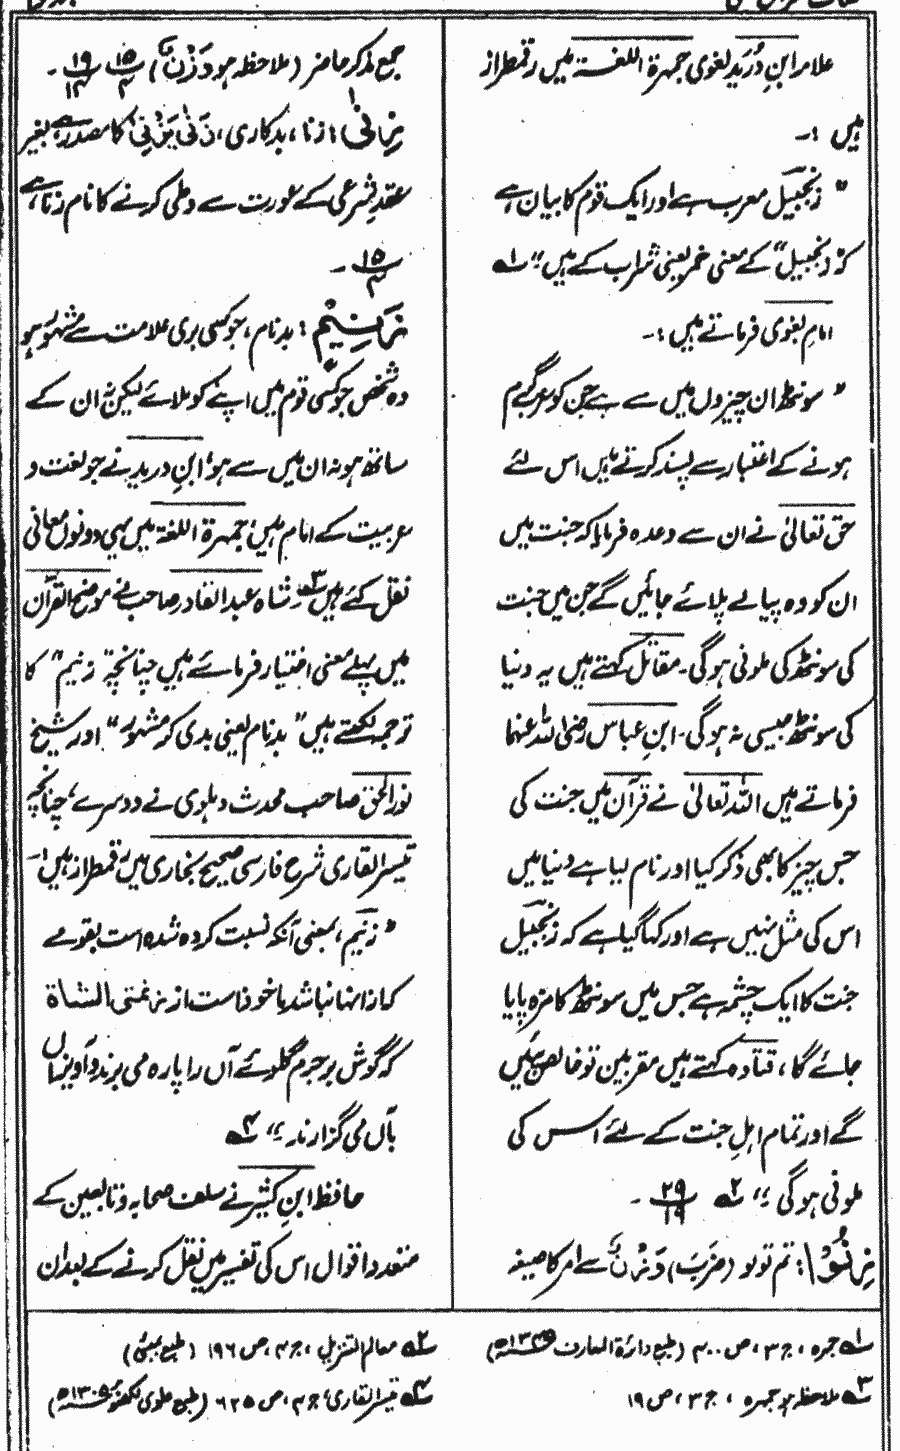 علامہ ابنِ دُرَید لغوی جمہرۃ اللغۃ میں رقمطراز
ہیں :-
" زنجبیل معرب ہے اور ایک قوم کا بیان ہے،
کہ "زنجبیل" کے معنی خمر یعنی شراب کے ہیں" ۱ے
امام بغوی فرماتے ہیں :-
" سونٹھ ان چیزوں میں سے ہے جن کو عرب
ہونے کے اعتبار سے پسند کرتے ہیں اس لئے
حق تعالیٰ نے ان سے وعدہ فرمایا کہ جنت میں
ان کو وہ پیالے پلائے جائیں گے جن میں جنت
کی سونٹھ کی ملونی ہوگی۔ مقاتل کہتے ہیں یہ دنیا
کی سونٹھ جیسی نہ ہوگی۔ ابنِ عباس رضی اللہ عنہما
فرماتے ہیں اللہ تعالیٰ نے قرآن میں جنت کی
جس چیز کا بھی ذکر کیا اور نام لیا ہے دنیا میں
اس کی مثل نہیں ہے اور کہا گیا ہے کہ زنجبیل
جنت کا ایک چشمہ ہے جس میں سونٹھ کا مزہ پایا
جائے گا، قتادہ کہتے ہیں مقربین تو خالص پئیں
گے اور تمام اہلِ جنت کے لئے اس کی
ملونی ہوگی" ۲ے ۲۹/۱۹ -
زِنُوْا: تم تولو (ضَرَبَ) وَزْنٌ سے امر کا صیغہ
جمع مذکر حاضر (ملاحظہ ہو وَزْن) ۱۵/۴ ۱۹/۱۴ -
زِنَانِیْ: زنا، بدکاری، زَنیٰ یَزْنِیْ کا مصدر ہے، بغیر
عقدِ شرعی کے عورت سے وطی کرنے کا نام زنا ہے،
۱۵/۴ -
زَنِیْمٌ: بدنام، جو کسی بری علامت سے مشہور ہو
وہ شخص جو کسی قوم میں اپنے کو ملائے لیکن نہ ان کے
ساتھ ہو نہ ان میں سے ہو، ابنِ درید نے جو لغت و
عربیت کے امام ہیں، جمہرۃ اللغۃ میں یہی دونوں معانی
نقل کئے ہیں ۳ے شاہ عبدالقادر صاحب نے موضح القرآن
میں پہلے معنی اختیار فرمائے ہیں چنانچہ "زنیم" کا
ترجمہ لکھتے ہیں "بدنام یعنی بدی کر مشہور" اور شیخ
نورالحق صاحب محدث دہلوی نے دوسرے، چنانچہ
تیسیر القاری شرح فارسی صحیح بخاری میں رقمطراز ہیں :-
" زنیم، بمعنی آنکہ نسبت کردہ شدہ است بقومے
کہ از انہا نباشد ماخوذ است از زنمتی الشاۃ
کہ گوش بر جرم گلوئے آں را پارہ می برند و آویزاں
بآں می گزارند" ۴ے
حافظ ابنِ کثیر نے سلف صحابہ و تابعین کے
متعدد اقوال اس کی تفسیر میں نقل کرنے کے بعد ان
۱ے جمہرہ، ج ۳، ص ۴۰۰ (طبع دائرۃ المعارف ۱۳۴۵ھ)
۲ے معالم التنزیل، ج ۴، ص ۱۹۶ (طبع بمبئی)
۳ے ملاحظہ ہو جمہرہ، ج ۳، ص ۱۹
۴ے تیسیر القاری، ج ۴، ص ۶۲۵ (طبع علوی لکھنؤ ۱۳۰۵ھ)